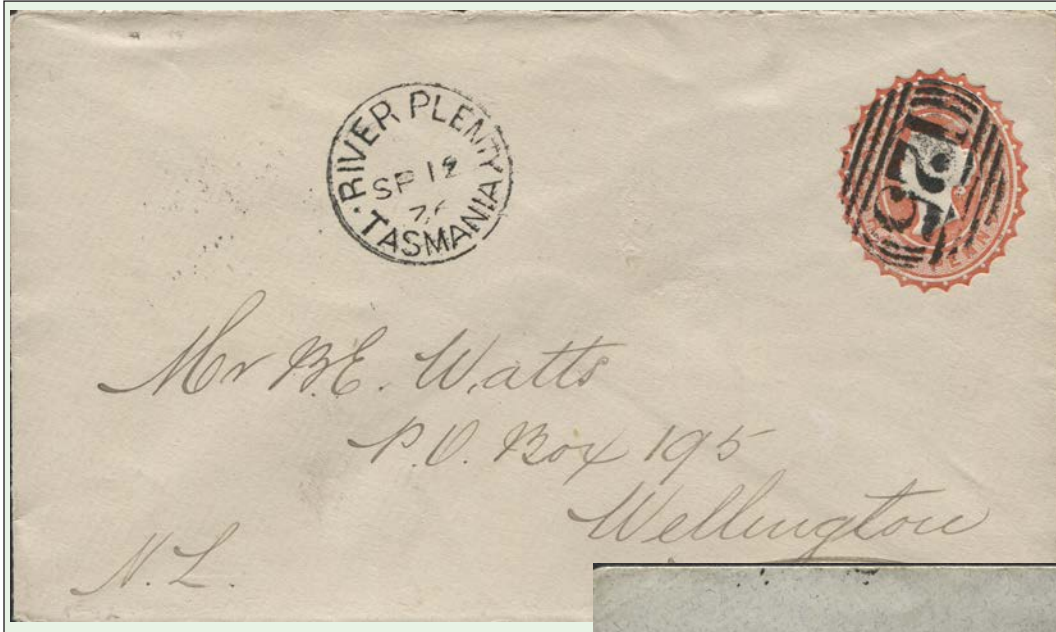 RIVER PLENTY
SP 12
TASMANIA
125
Mr B.E. Watts
P.O. Box 195
Wellington
N.Z.